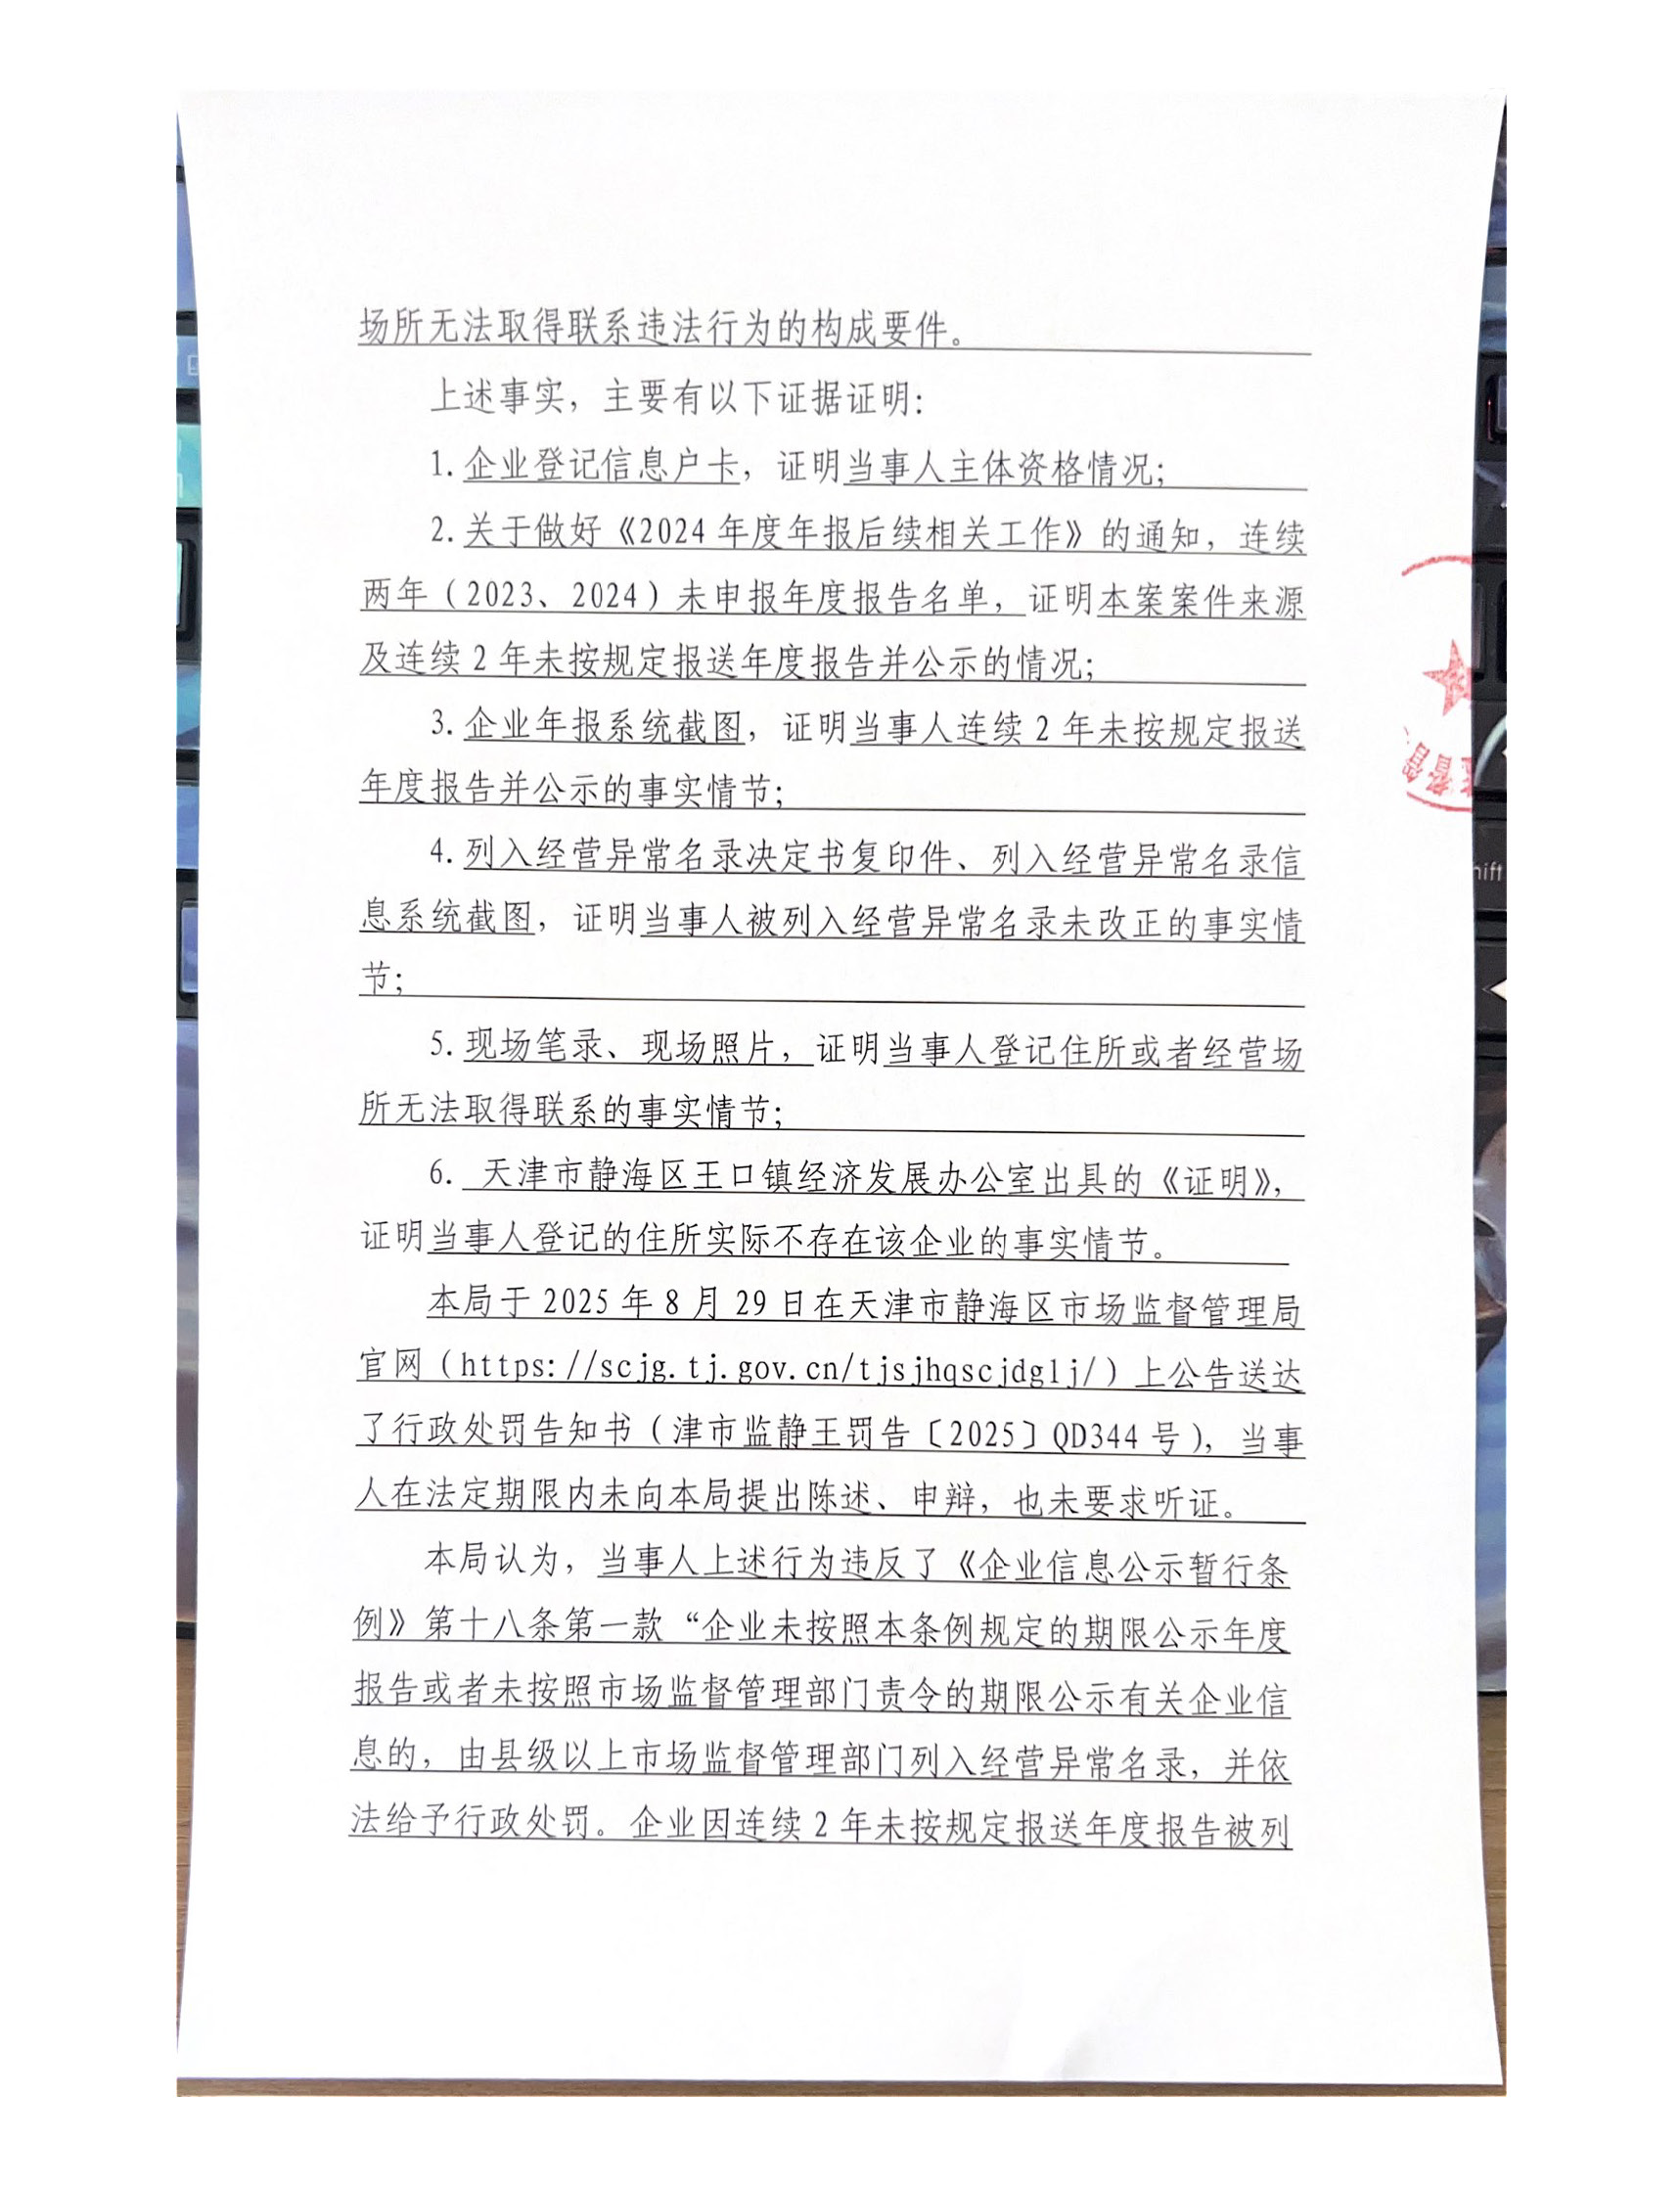 场所无法取得联系违法行为的构成要件。
上述事实，主要有以下证据证明：
1. 企业登记信息户卡，证明当事人主体资格情况；
2. 关于做好《2024 年度年报后续相关工作》的通知，连续
两年（2023、2024）未申报年度报告名单，证明本案案件来源
及连续 2 年未按规定报送年度报告并公示的情况；
3. 企业年报系统截图，证明当事人连续 2 年未按规定报送
年度报告并公示的事实情节；
4. 列入经营异常名录决定书复印件、列入经营异常名录信
息系统截图，证明当事人被列入经营异常名录未改正的事实情
节；
5. 现场笔录、现场照片，证明当事人登记住所或者经营场
所无法取得联系的事实情节；
6. 天津市静海区王口镇经济发展办公室出具的《证明》，
证明当事人登记的住所实际不存在该企业的事实情节。
本局于 2025 年 8 月 29 日在天津市静海区市场监督管理局
官网（https://scjg.tj.gov.cn/tjsjhqscjdglj/）上公告送达
了行政处罚告知书（津市监静王罚告〔2025〕QD344 号），当事
人在法定期限内未向本局提出陈述、申辩，也未要求听证。
本局认为，当事人上述行为违反了《企业信息公示暂行条
例》第十八条第一款“企业未按照本条例规定的期限公示年度
报告或者未按照市场监督管理部门责令的期限公示有关企业信
息的，由县级以上市场监督管理部门列入经营异常名录，并依
法给予行政处罚。企业因连续 2 年未按规定报送年度报告被列
hift